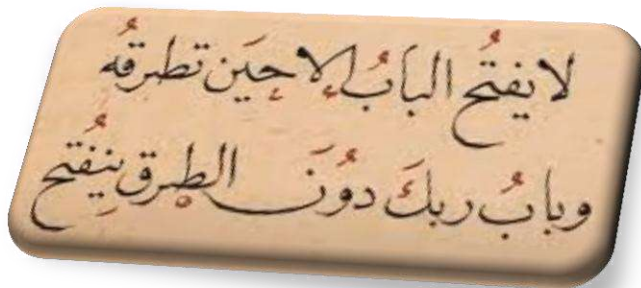 لا يفتحُ البابُ إلا حيَن تطرقهُ
وبابُ ربكَ دوُنَ الطرقِ ينفتحُ